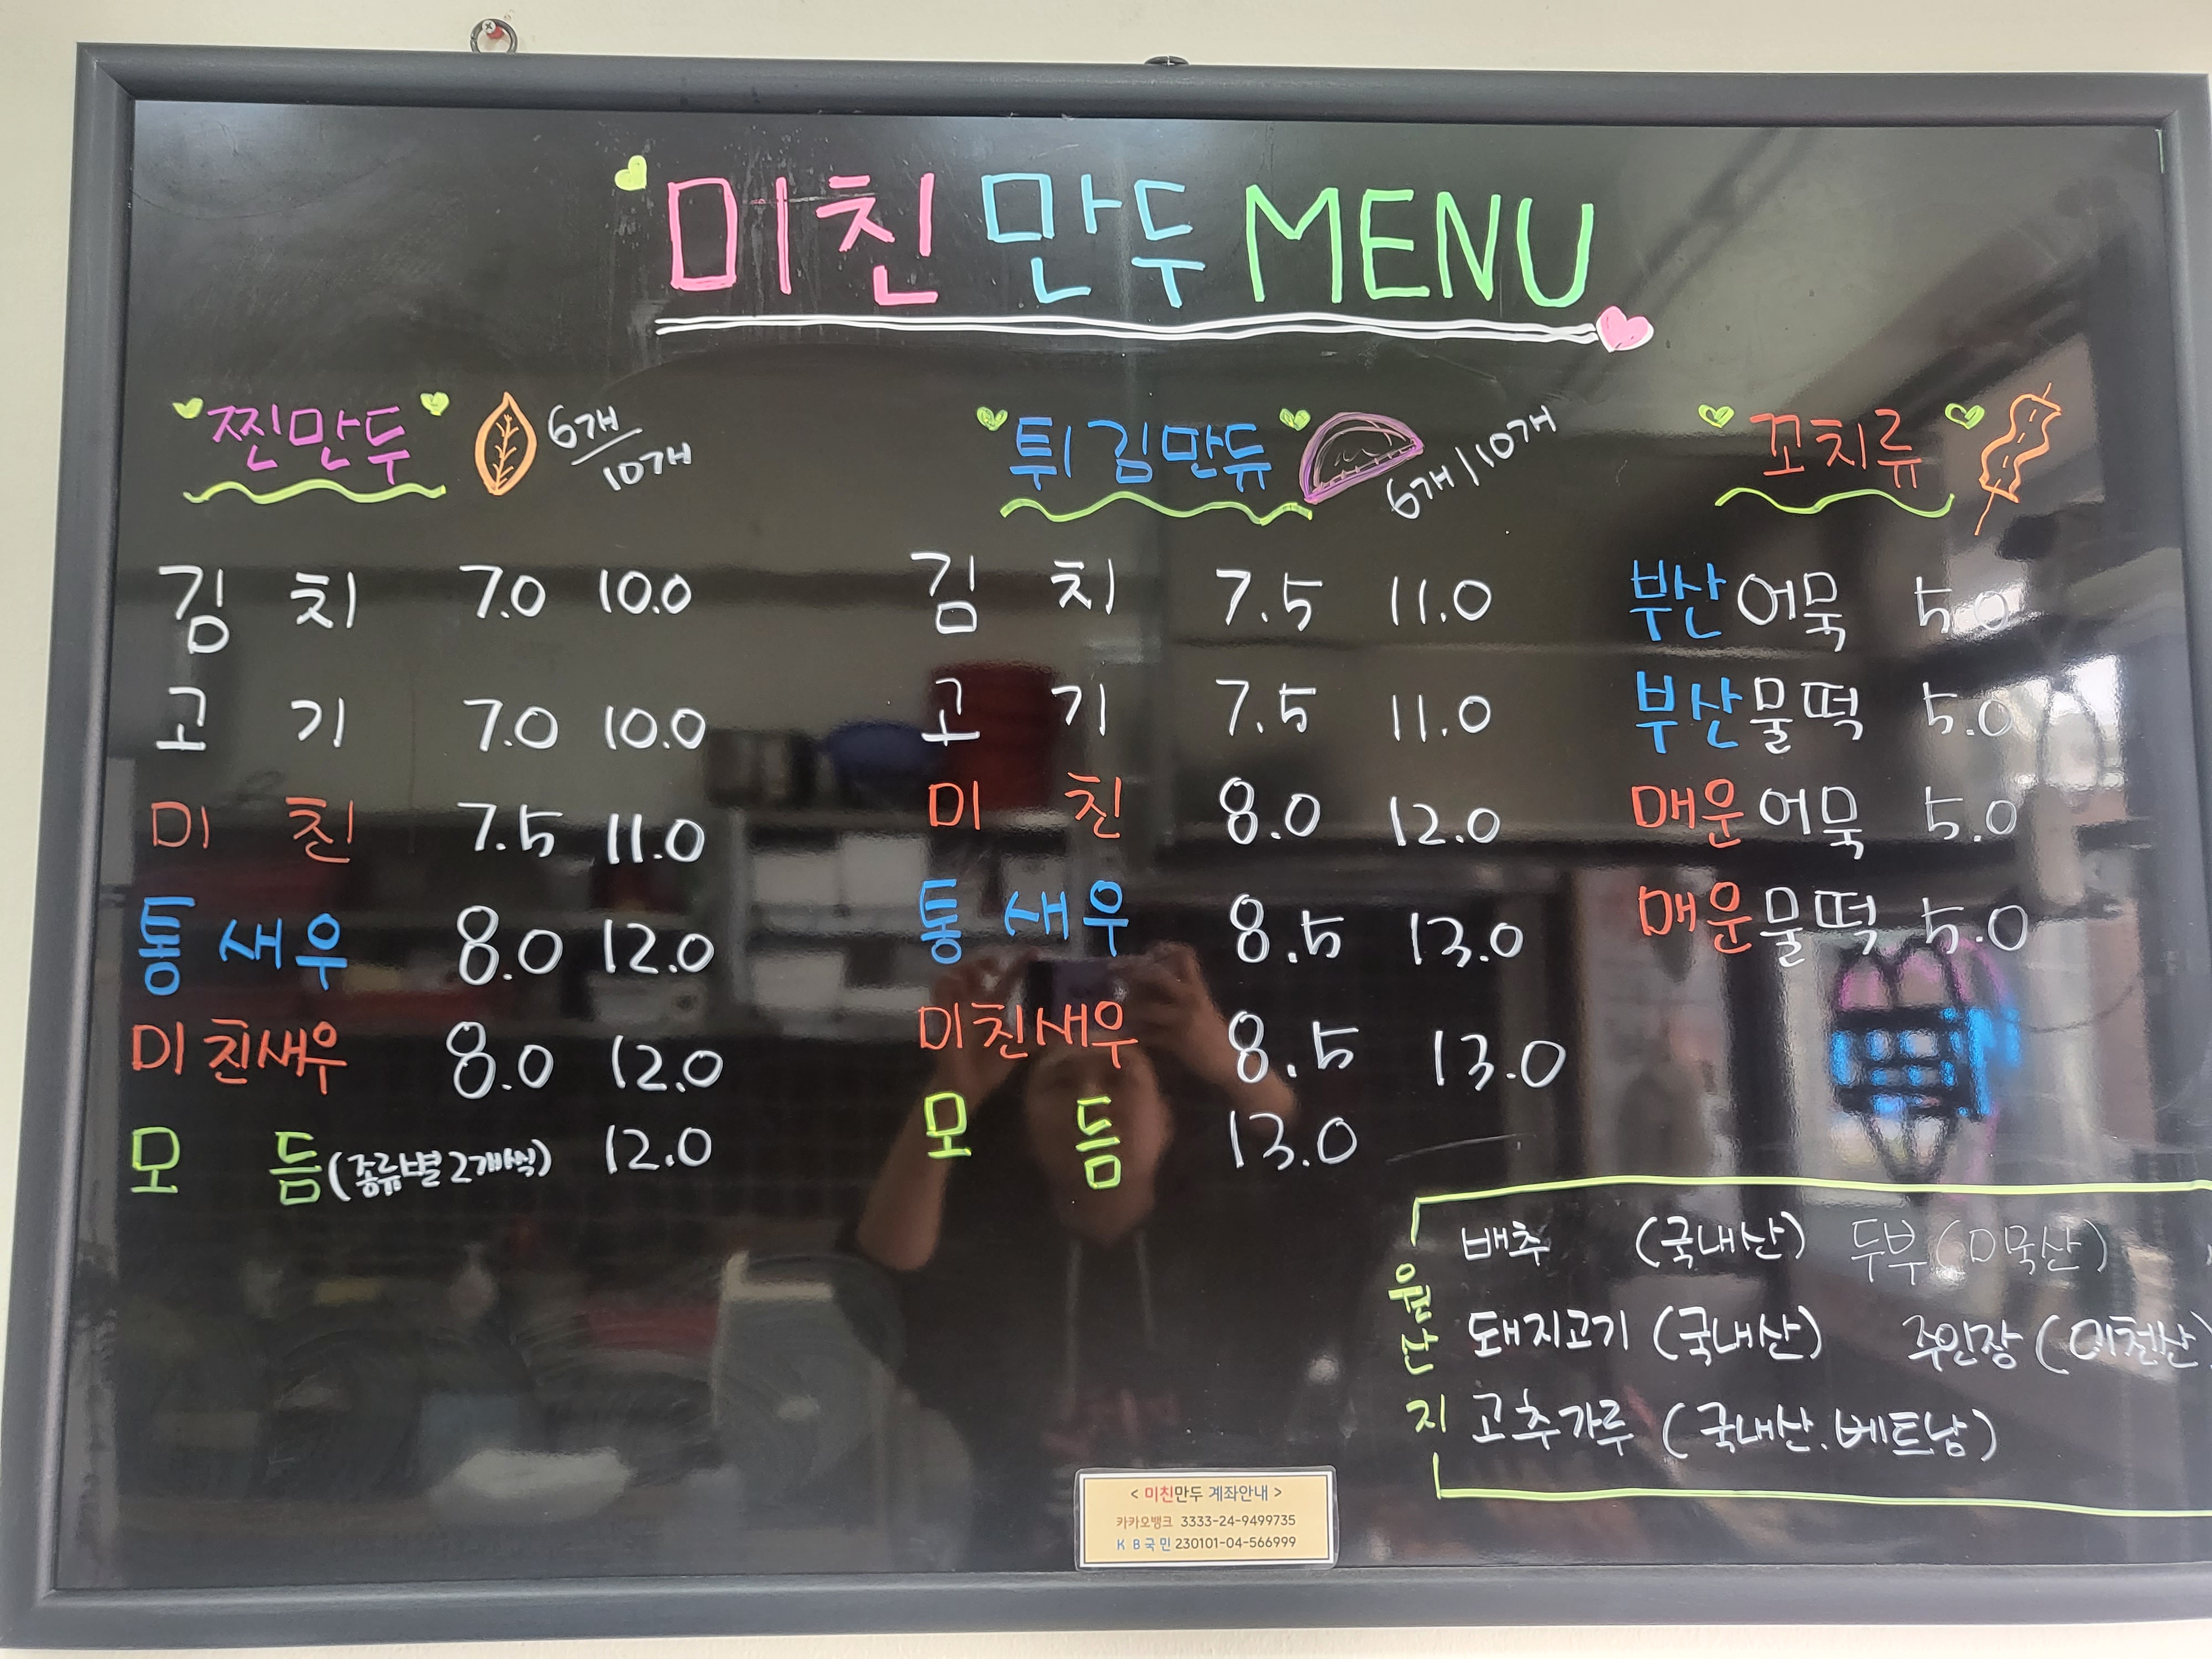 미친만두 MENU
찐만두 6개/10개
김치 7.0 10.0
고기 7.0 10.0
미친 7.5 11.0
통새우 8.0 12.0
미친새우 8.0 12.0
모듬(종류별 2개씩) 12.0
튀김만듀 6개/10개
김치 7.5 11.0
고기 7.5 11.0
미친 8.0 12.0
통새우 8.5 13.0
미친새우 8.5 13.0
모듬 13.0
꼬치류
부산어묵 5.0
부산물떡 5.0
매운어묵 5.0
매운물떡 5.0
원산지
배추 (국내산) 두부 (미국산)
돼지고기 (국내산) 주인장 (이천산)
고추가루 (국내산.베트남)
< 미친만두 계좌안내 >
카카오뱅크 3333-24-9499735
KB국민 230101-04-566999